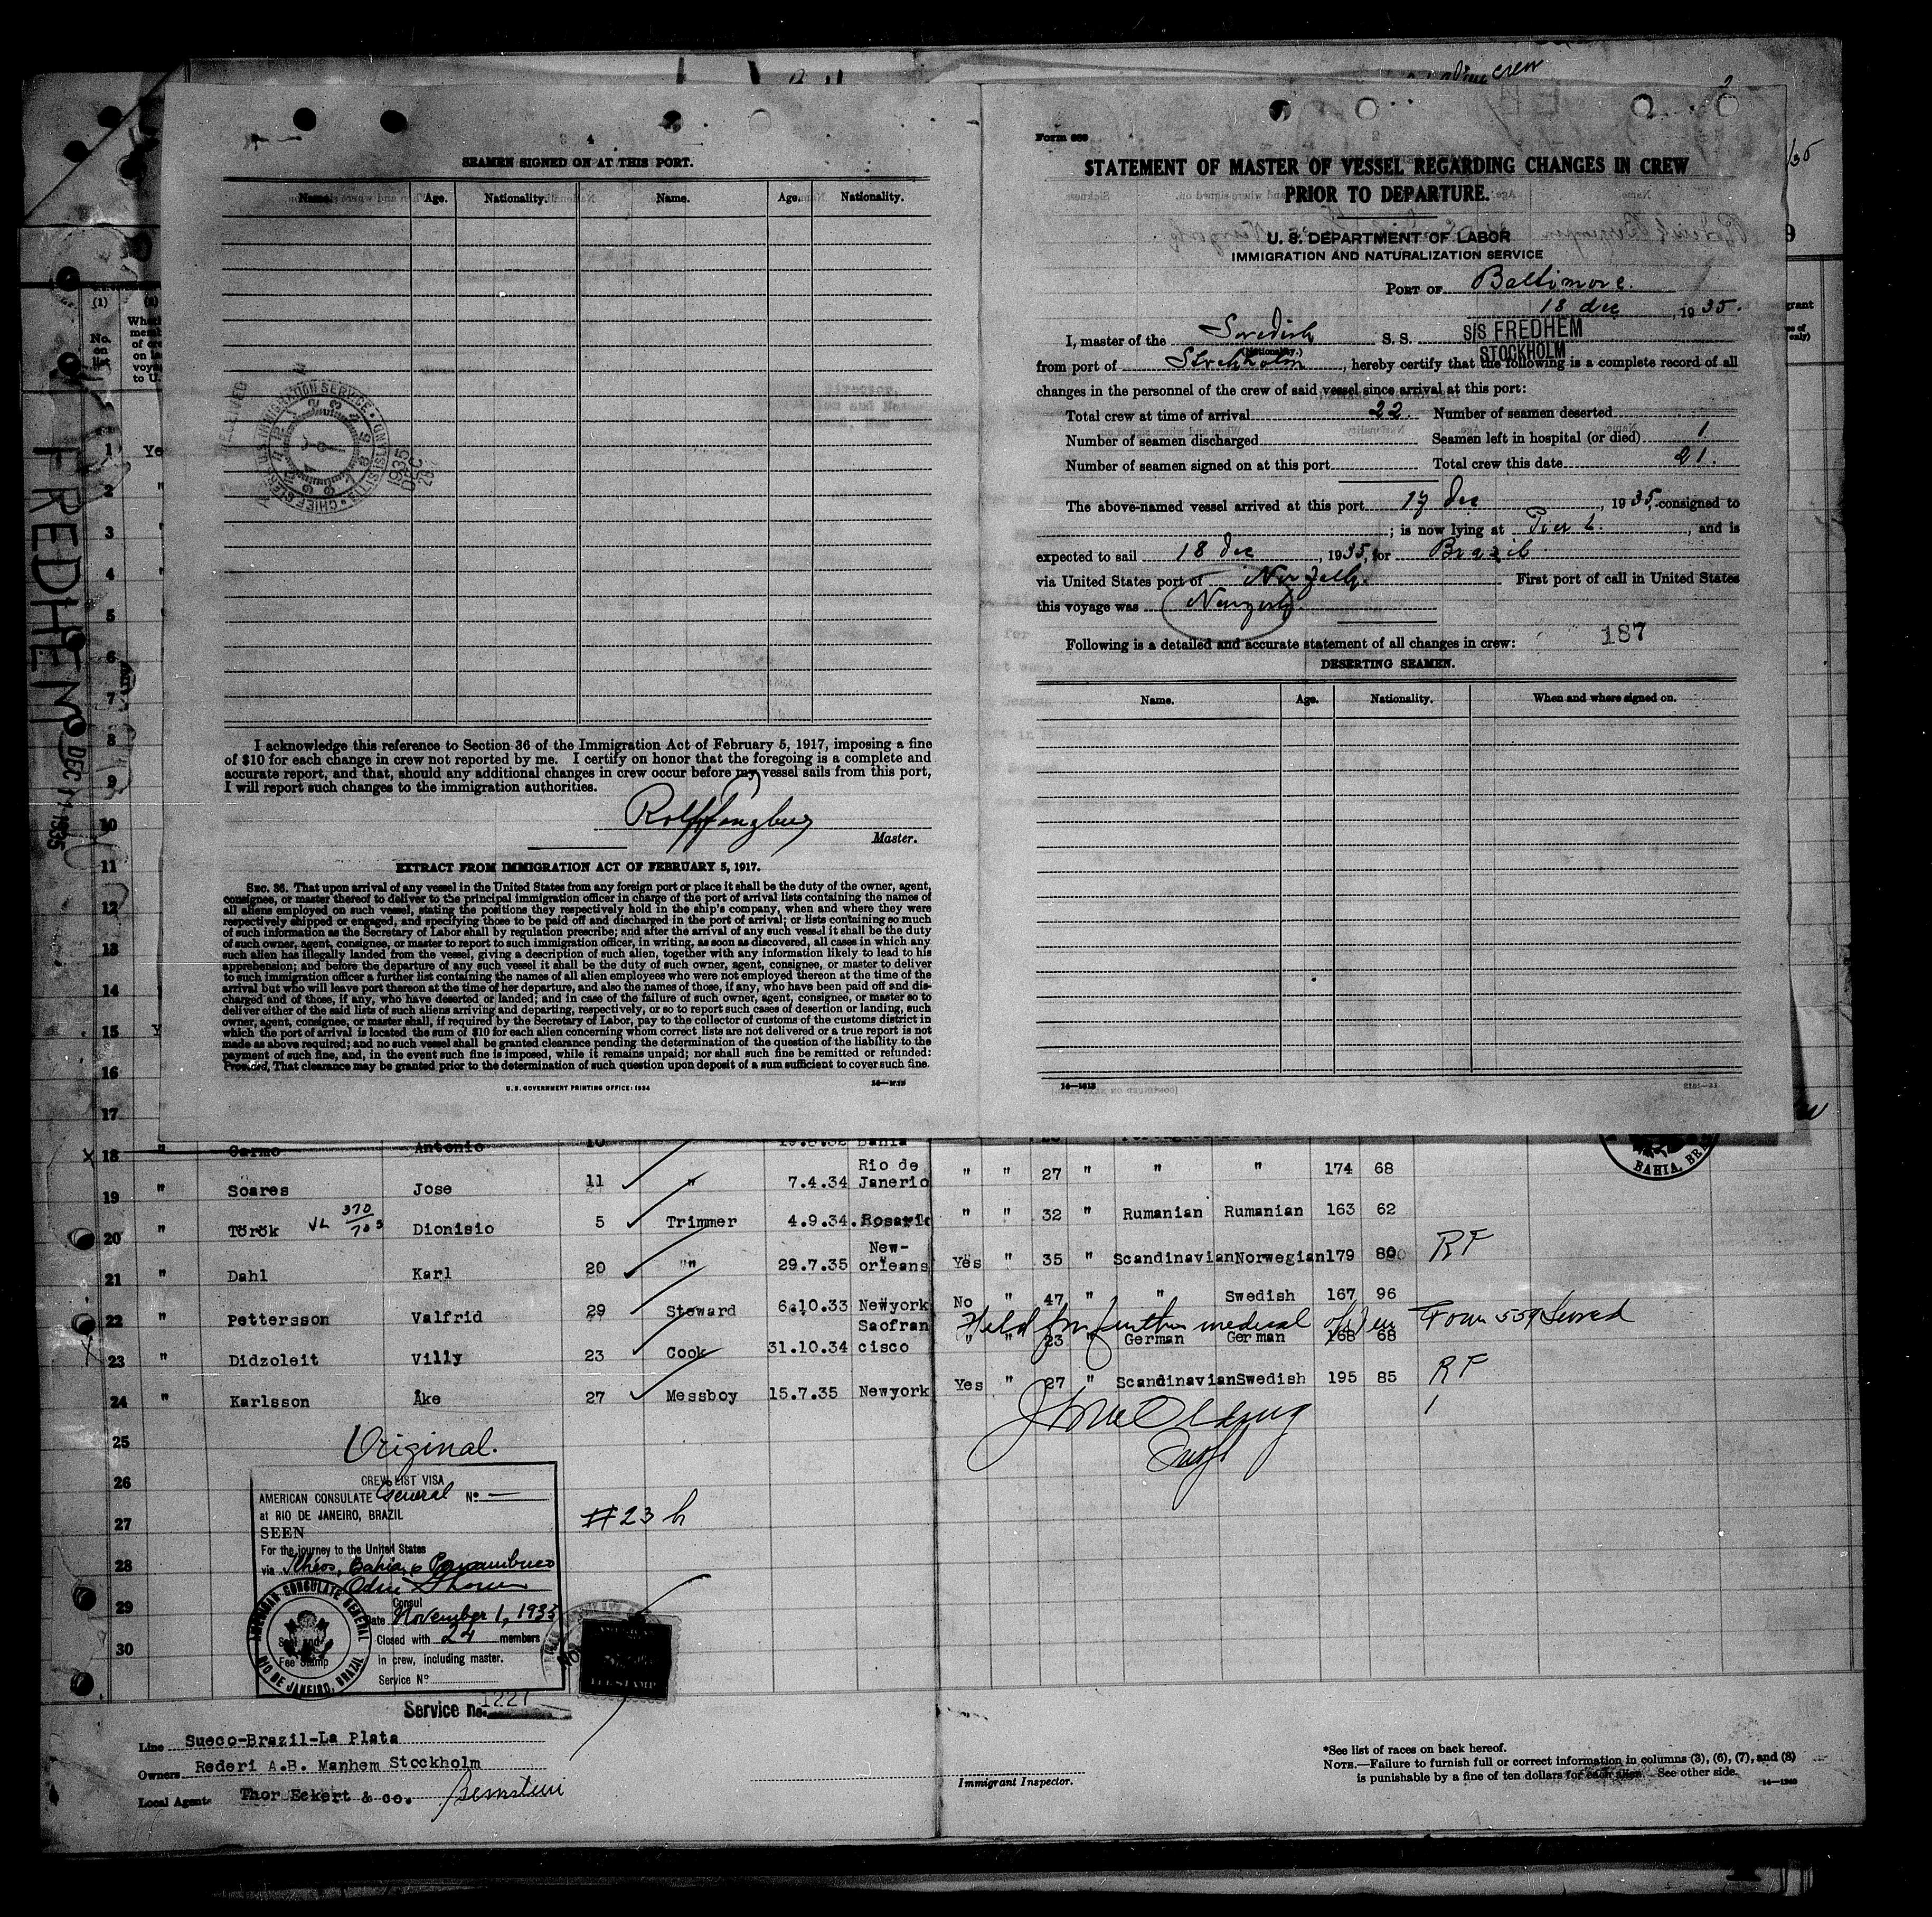 crew
SEAMEN SIGNED ON AT THIS PORT.
Name. Age. Nationality. Name. Age. Nationality.
RECEIVED
1935 DEC 20
I acknowledge this reference to Section 36 of the Immigration Act of February 5, 1917, imposing a fine
of $10 for each change in crew not reported by me. I certify on honor that the foregoing is a complete and
accurate report, and that, should any additional changes in crew occur before my vessel sails from this port,
I will report such changes to the immigration authorities.
Master.
EXTRACT FROM IMMIGRATION ACT OF FEBRUARY 5, 1917.
SEC. 36. That upon arrival of any vessel in the United States from any foreign port or place it shall be the duty of the owner, agent,
consignee, or master thereof to deliver to the principal immigration officer in charge of the port of arrival lists containing the names of
all aliens employed on such vessel, stating the positions they respectively hold in the ship's company, when and where they were
respectively shipped or engaged, and specifying those to be paid off and discharged in the port of arrival; or lists containing so much
of such information as the Secretary of Labor shall by regulation prescribe; and after the arrival of any such vessel it shall be the duty
of such owner, agent, consignee, or master to report to such immigration officer, in writing, as soon as discovered, all cases in which any
such alien has illegally landed from the vessel, giving a description of such alien, together with any information likely to lead to his
apprehension; and before the departure of any such vessel it shall be the duty of such owner, agent, consignee, or master to deliver
to such immigration officer a further list containing the names of all alien employees who were not employed thereon at the time of the
arrival but who will leave port thereon at the time of her departure, and also the names of those, if any, who have been paid off and dis-
charged and of those, if any, who have deserted or landed; and in case of the failure of such owner, agent, consignee, or master so to
deliver either of the said lists of such aliens arriving and departing, respectively, or so to report such cases of desertion or landing, such
owner, agent, consignee, or master shall, if required by the Secretary of Labor, pay to the collector of customs of the customs district in
which the port of arrival is located the sum of $10 for each alien concerning whom correct lists are not delivered or a true report is not
made as above required; and no such vessel shall be granted clearance pending the determination of the question of the liability to the
payment of such fine, and, in the event such fine is imposed, while it remains unpaid; nor shall such fine be remitted or refunded:
Provided, That clearance may be granted prior to the determination of such question upon deposit of a sum sufficient to cover such fine.
U. S. GOVERNMENT PRINTING OFFICE: 1934
Form 689
STATEMENT OF MASTER OF VESSEL REGARDING CHANGES IN CREW
PRIOR TO DEPARTURE.
U. S. DEPARTMENT OF LABOR
IMMIGRATION AND NATURALIZATION SERVICE
PORT OF Baltimore.
18 dec, 1935.
I, master of the Swedish S. S. S/S FREDHEM
(Nationality.) STOCKHOLM
from port of Stockholm, hereby certify that the following is a complete record of all
changes in the personnel of the crew of said vessel since arrival at this port:
Total crew at time of arrival 22. Number of seamen deserted
Number of seamen discharged Seamen left in hospital (or died) 1
Number of seamen signed on at this port Total crew this date 21.
The above-named vessel arrived at this port 17 dec, 1935, consigned to
; is now lying at Pier 6., and is
expected to sail 18 dec, 1935, for Brazil.
via United States port of Norfolk. First port of call in United States
this voyage was Newyork.
187
Following is a detailed and accurate statement of all changes in crew:
DESERTING SEAMEN.
Name. Age. Nationality. When and where signed on.
14—1613
FREDHEM DEC 14 1935
(1)
No. on list
1 Yes
2 "
3
4
5
6
7
8
9
10
11
12
13
14
15
16
17
18 Carmo Antonio 10
19 " Soares Jose 11 " 7.4.34 Rio de Janerio " " 27 " " " 174 68
20 " Török VL 370/703 Dionisio 5 Trimmer 4.9.34. Rosario " " 32 " Rumanian Rumanian 163 62
21 " Dahl Karl 20 "" 29.7.35 New-orleans Yes " 35 " Scandinavian Norwegian 179 80 RF
22 " Pettersson Valfrid 29 Steward 6.10.33 Newyork No " 47 " " Swedish 167 96
Held for further medical Form 559 served
23 " Didzoleit Villy 23 Cook 31.10.34 Saofrancisco " " 23 " German German 168 68
24 " Karlsson Åke 27 Messboy 15.7.35 Newyork Yes " 27 " Scandinavian Swedish 195 85 RF
25
26
27
28
29
30
BAHIA, BR
Original.
CREW LIST VISA
AMERICAN CONSULATE General No —
at RIO DE JANEIRO, BRAZIL
SEEN
For the journey to the United States
via Ilheos, Bahia, & Pernambuco
Consul
Date November 1, 1935
Closed with 24 members
in crew, including master.
Service No
AMERICAN CONSULATE GENERAL RIO DE JANEIRO, BRAZIL
Seal and Fee Stamp
#23 h
Service no. 1227
Line Sueco-Brazil-La Plata
Owners Rederi A.B. Manhem Stockholm
Local Agents Thor Eckert & co. Bernstein
Immigrant Inspector.
*See list of races on back hereof.
NOTE.—Failure to furnish full or correct information in columns (3), (6), (7), and (8)
is punishable by a fine of ten dollars for each alien. See other side.
14—1240